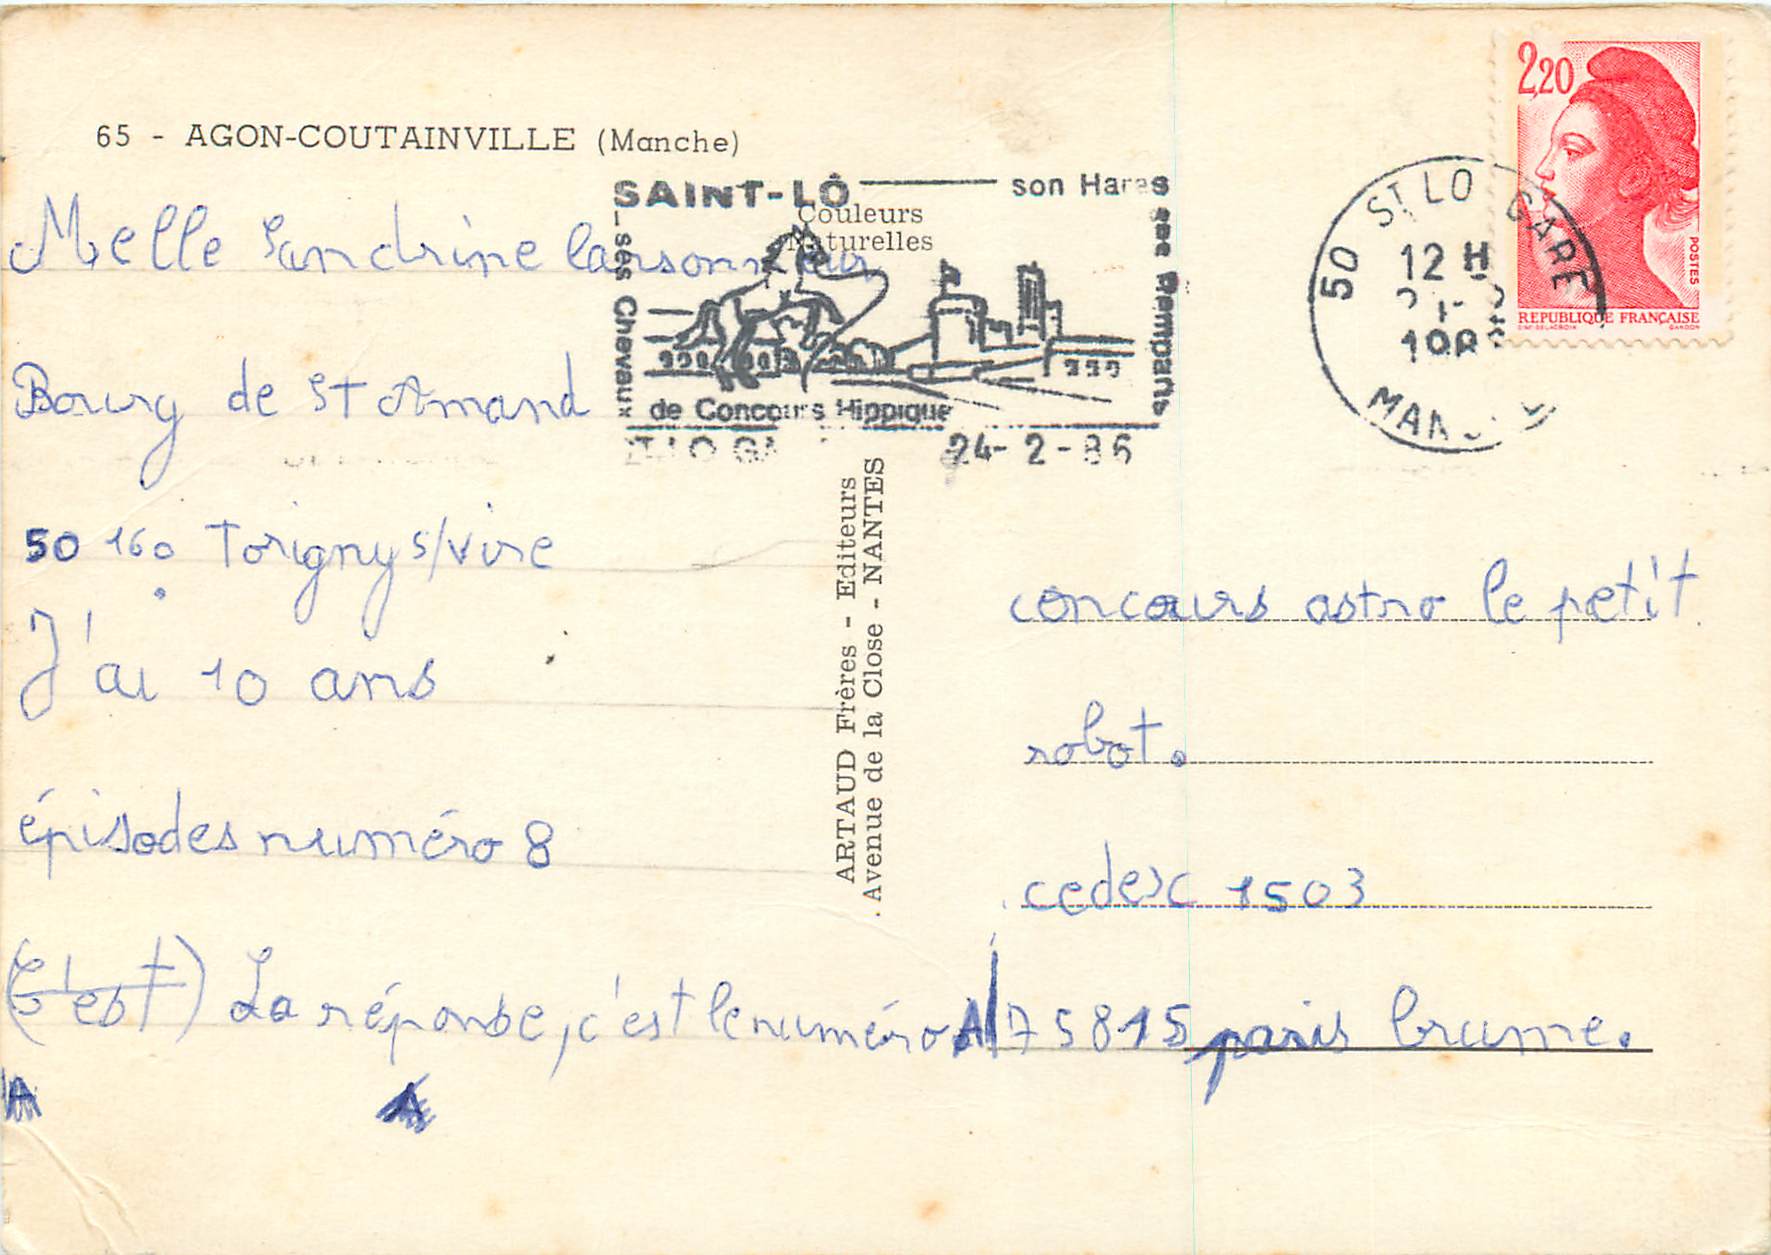 65 - AGON-COUTAINVILLE (Manche)
Couleurs
Naturelles
SAINT-LÔ son Haras
ses Remparts
ses Chevaux
de Concours Hippique
24-2-86
50 ST LO GARE
12 H
MANCHE
2,20
POSTES
REPUBLIQUE FRANÇAISE
Melle Sandrine larsonneur
Bourg de St Amand
50 160 Torigny s/vire
J'ai 10 ans
épisodes numéro 8
(C'est) La réponse, c'est le numéro A
ARTAUD Frères - Editeurs
Avenue de la Close - NANTES
concours astro le petit
robot.
cedexc 1503
75815 paris brume.